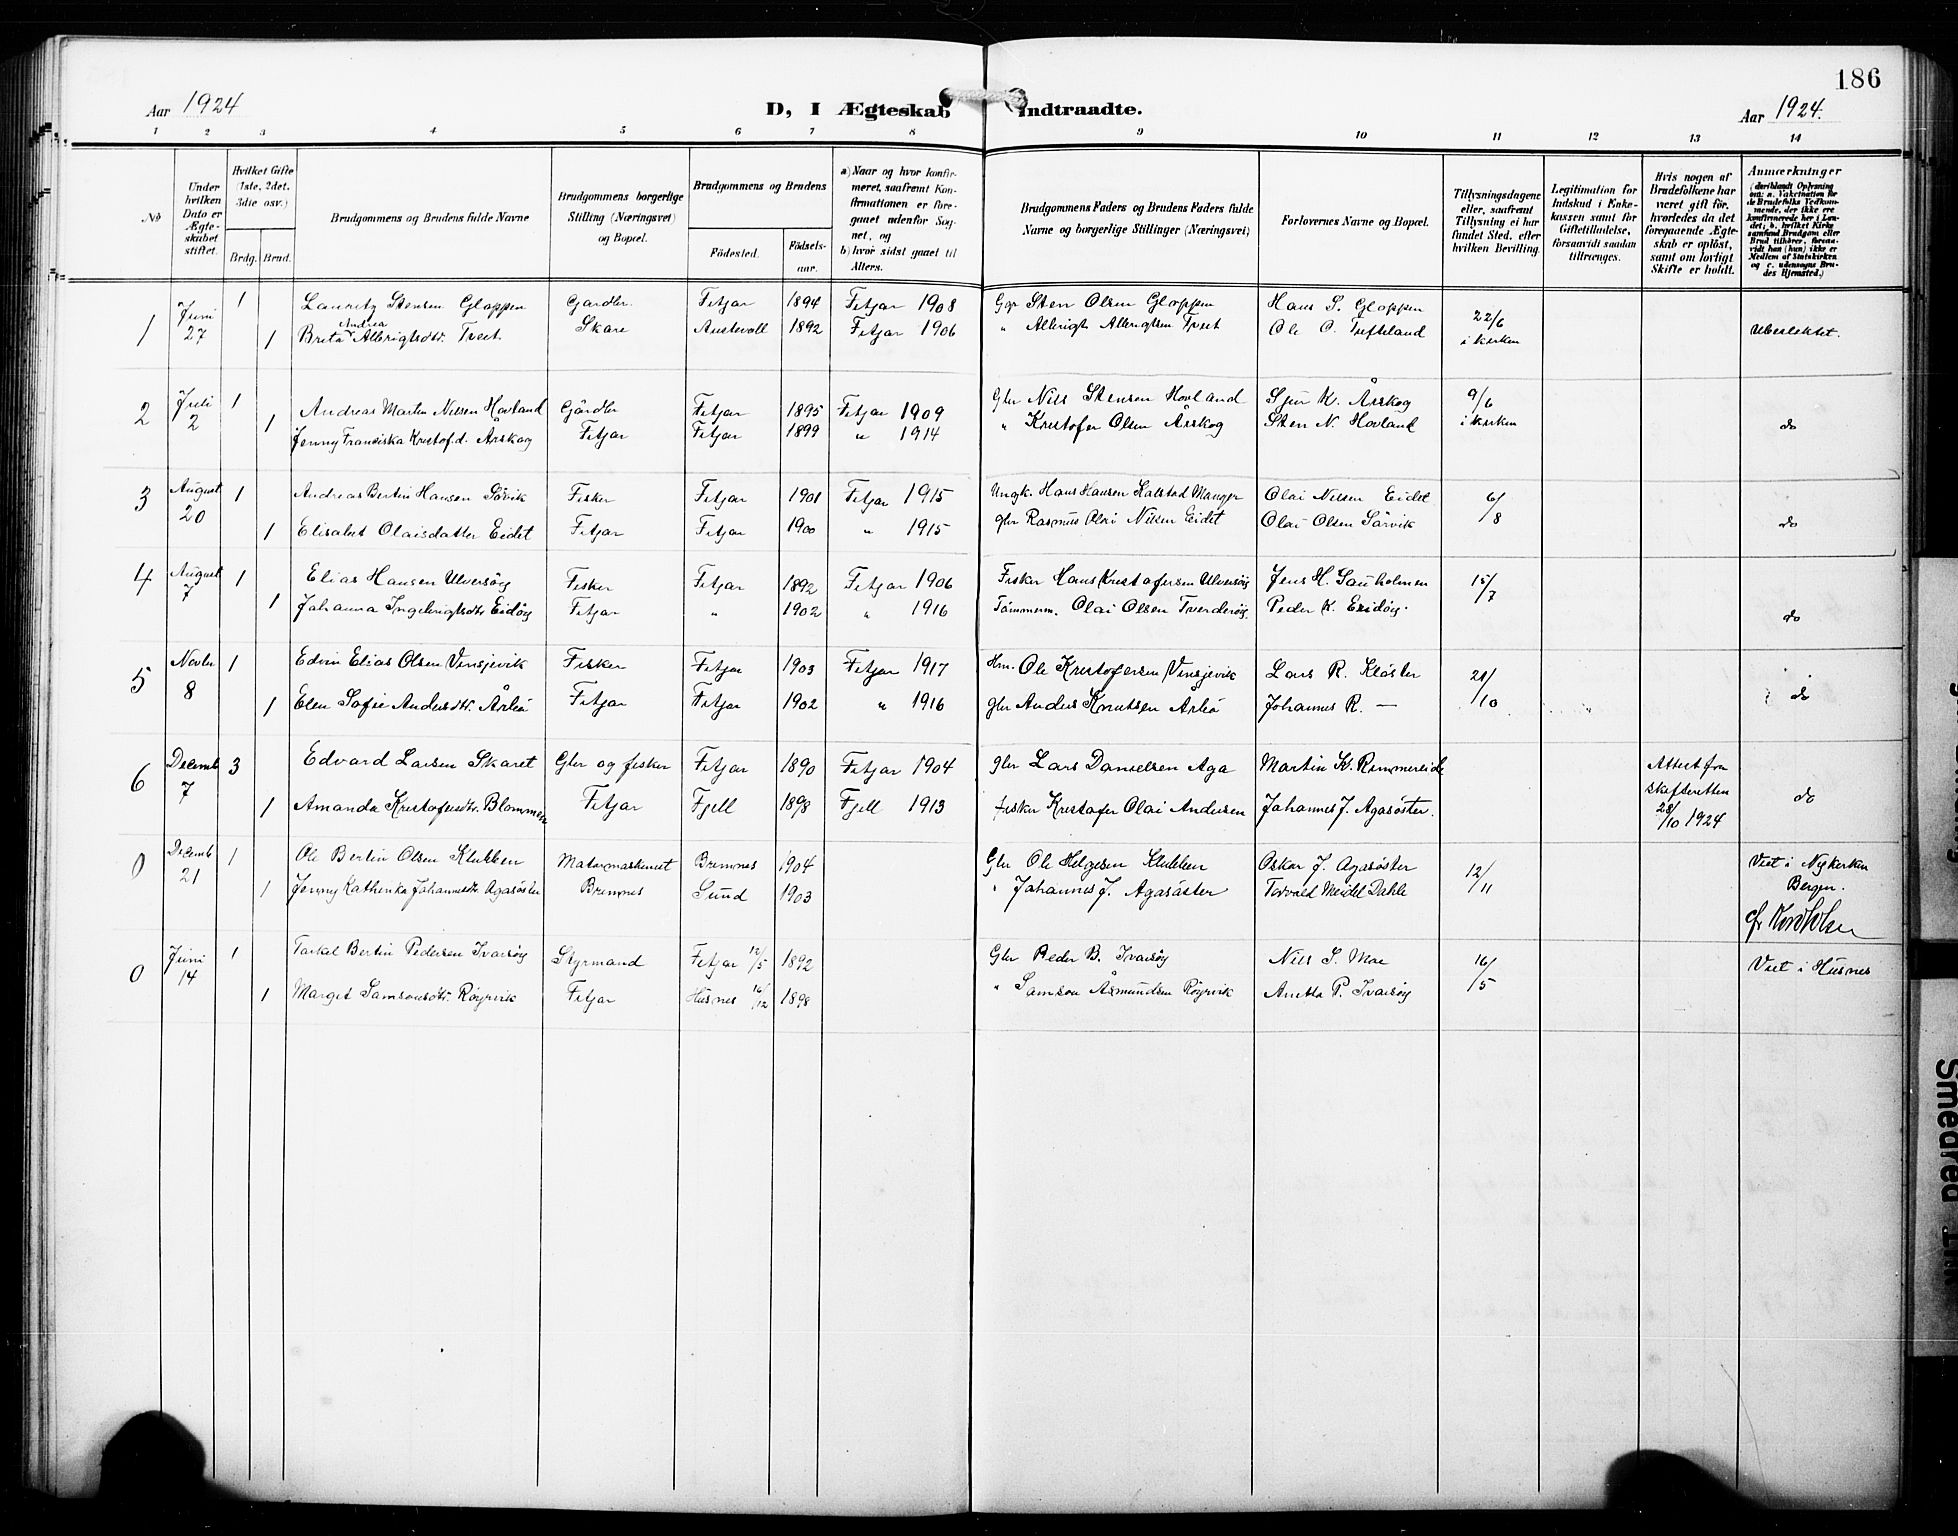 186
Aar 1924
D, I Ægteskab Indtraadte.
Aar 1924.
1 2 3 4 5 6 7 8 9 10 11 12 13 14
No
Under hvilken Dato er Ægteskabet stiftet.
Hvilket Gifte (1ste, 2det, 3die osv.)
Brdg. Brud.
Brudgommens og Brudens fulde Navne
Brudgommens borgerlige Stilling (Næringsvei) og Bopæl.
Brudgommens og Brudens
Födested.
Födselsaar.
a) Naar og hvor konfirmeret, saafremt Konfirmationen er foregaaet udenfor Sognet, og
b) hvor sidst gaaet til Alters.
Brudgommens Faders og Brudens Faders fulde Navne og borgerlige Stillinger (Næringsvei)
Forlovernes Navne og Bopæl.
Tillysningsdagene eller, saafremt Tillysning ei har fundet Sted, efter hvilken Bevilling.
Legitimation for Indskud i Enkekassen samt for Giftetilladelse, forsaavidt saadan tiltrænges.
Hvis nogen af Brudefolkene har været gift før, hvorledes da det foregaaende Ægteskab er opløst, samt om lovligt Skifte er holdt.
Anmerkninger
(deriblandt Oplysning om: a. Vakcination for de Brudefolks Vedkommende, der ikke ere konfirmerede her i Landet; b. hvilket Kirkesamfund Brudgom eller Brud tilhører, forsaavidt han (hun) ikke er Medlem af Statskirken og c. udensogns Brudes Hjemsted.)
1 Juni 27 1 Lauritz Stensen Gloppen Gardbr. Fitjar 1894 Fitjar 1908 Gbr Sten Olsen Gloppen Hans S. Gloppen 22/6 i kirken
1 Brita Andrea Albrigtsdtr. Tveit Skare Austevoll 1892 Fitjar 1906 " Albrigt Albrigtsen Tveit Ole O. Tufteland Ubeslektet.
2 Juli 2 1 Andreas Martin Nilsen Hovland Gårdbr Fitjar 1895 Fitjar 1909 Gbr Nils Stensen Hovland Sjur K. Årskog 9/6 i kirken
1 Jenny Fransiska Kristof.d. Årskog Fitjar Fitjar 1899 " 1914 " Kristofer Olsen Årskog Sten N. Hovland do
3 August 20 1 Andreas Bertin Hansen Sørvik Fisker Fitjar 1901 Fitjar 1915 Ungk. Hans Hansen Kalstad Manger Olai Nilsen Eidet 6/8
1 Elisabet Olaisdatter Eidet Fitjar Fitjar 1900 " 1915 gbr Rasmus Olai Nilsen Eidet Olai Olsen Sørvik do
4 August 7 1 Elias Hansen Ulversøy Fisker Fitjar 1892 Fitjar 1906 Fisker Hans Kristofersen Ulversøy Jens H. Sauholmen 15/7
1 Johanna Ingebrigtsdtr Eidøy Fitjar " 1902 " 1916 Tømmerm. Olai Olsen Tverderøy Peder K. Eidøy. do
5 Novbr 8 1 Edvin Elias Olsen Vinsjevik Fisker Fitjar 1903 Fitjar 1917 Hm. Ole Kristofersen Vinsjevik Lars R. Kløster 20/10
1 Elen Sofie Andersdtr. Årbø Fitjar Fitjar 1902 " 1916 gbr Anders Knutsen Årbø Johannes R. — do
6 Decemb 7 3 Edvard Larsen Skaret Gbr og fisker Fitjar 1890 Fitjar 1904 gbr Lars Danielsen Aga Martin K. Rimmereide Attest fra skifteretten 28/10 1924
1 Amanda Kristofersdtr. Blommen Fitjar Fjell 1898 Fjell 1913 fisker Kristofer Olai Andersen Johannes J. Agasøster. do
0 Decemb 21 1 Ole Bertin Olsen Klubben Matormaskinist Bremnes 1904 Gbr Ole Helgesen Klubben Oskar J. Agasøster 12/11 Viet i Nykirken Bergen.
1 Jenny Kathinka Johannesdtr Agasøster Bremnes Sund 1903 " Johannes J. Agasøster Torvald Meidel Dahle
0 Juni 14 1 Torkel Bertin Pedersen Ivarsøy Styrmand Fitjar 12/5 1892 Gbr Peder B. Ivarsøy Nils S. Moe 16/5 Viet i Husnes
1 Marget Samsonsdtr. Røyrvik Fitjar Husnes 16/12 1898 " Samson Åsmundsen Røyrvik Anetta P. Ivarsøy
Smeared Ink